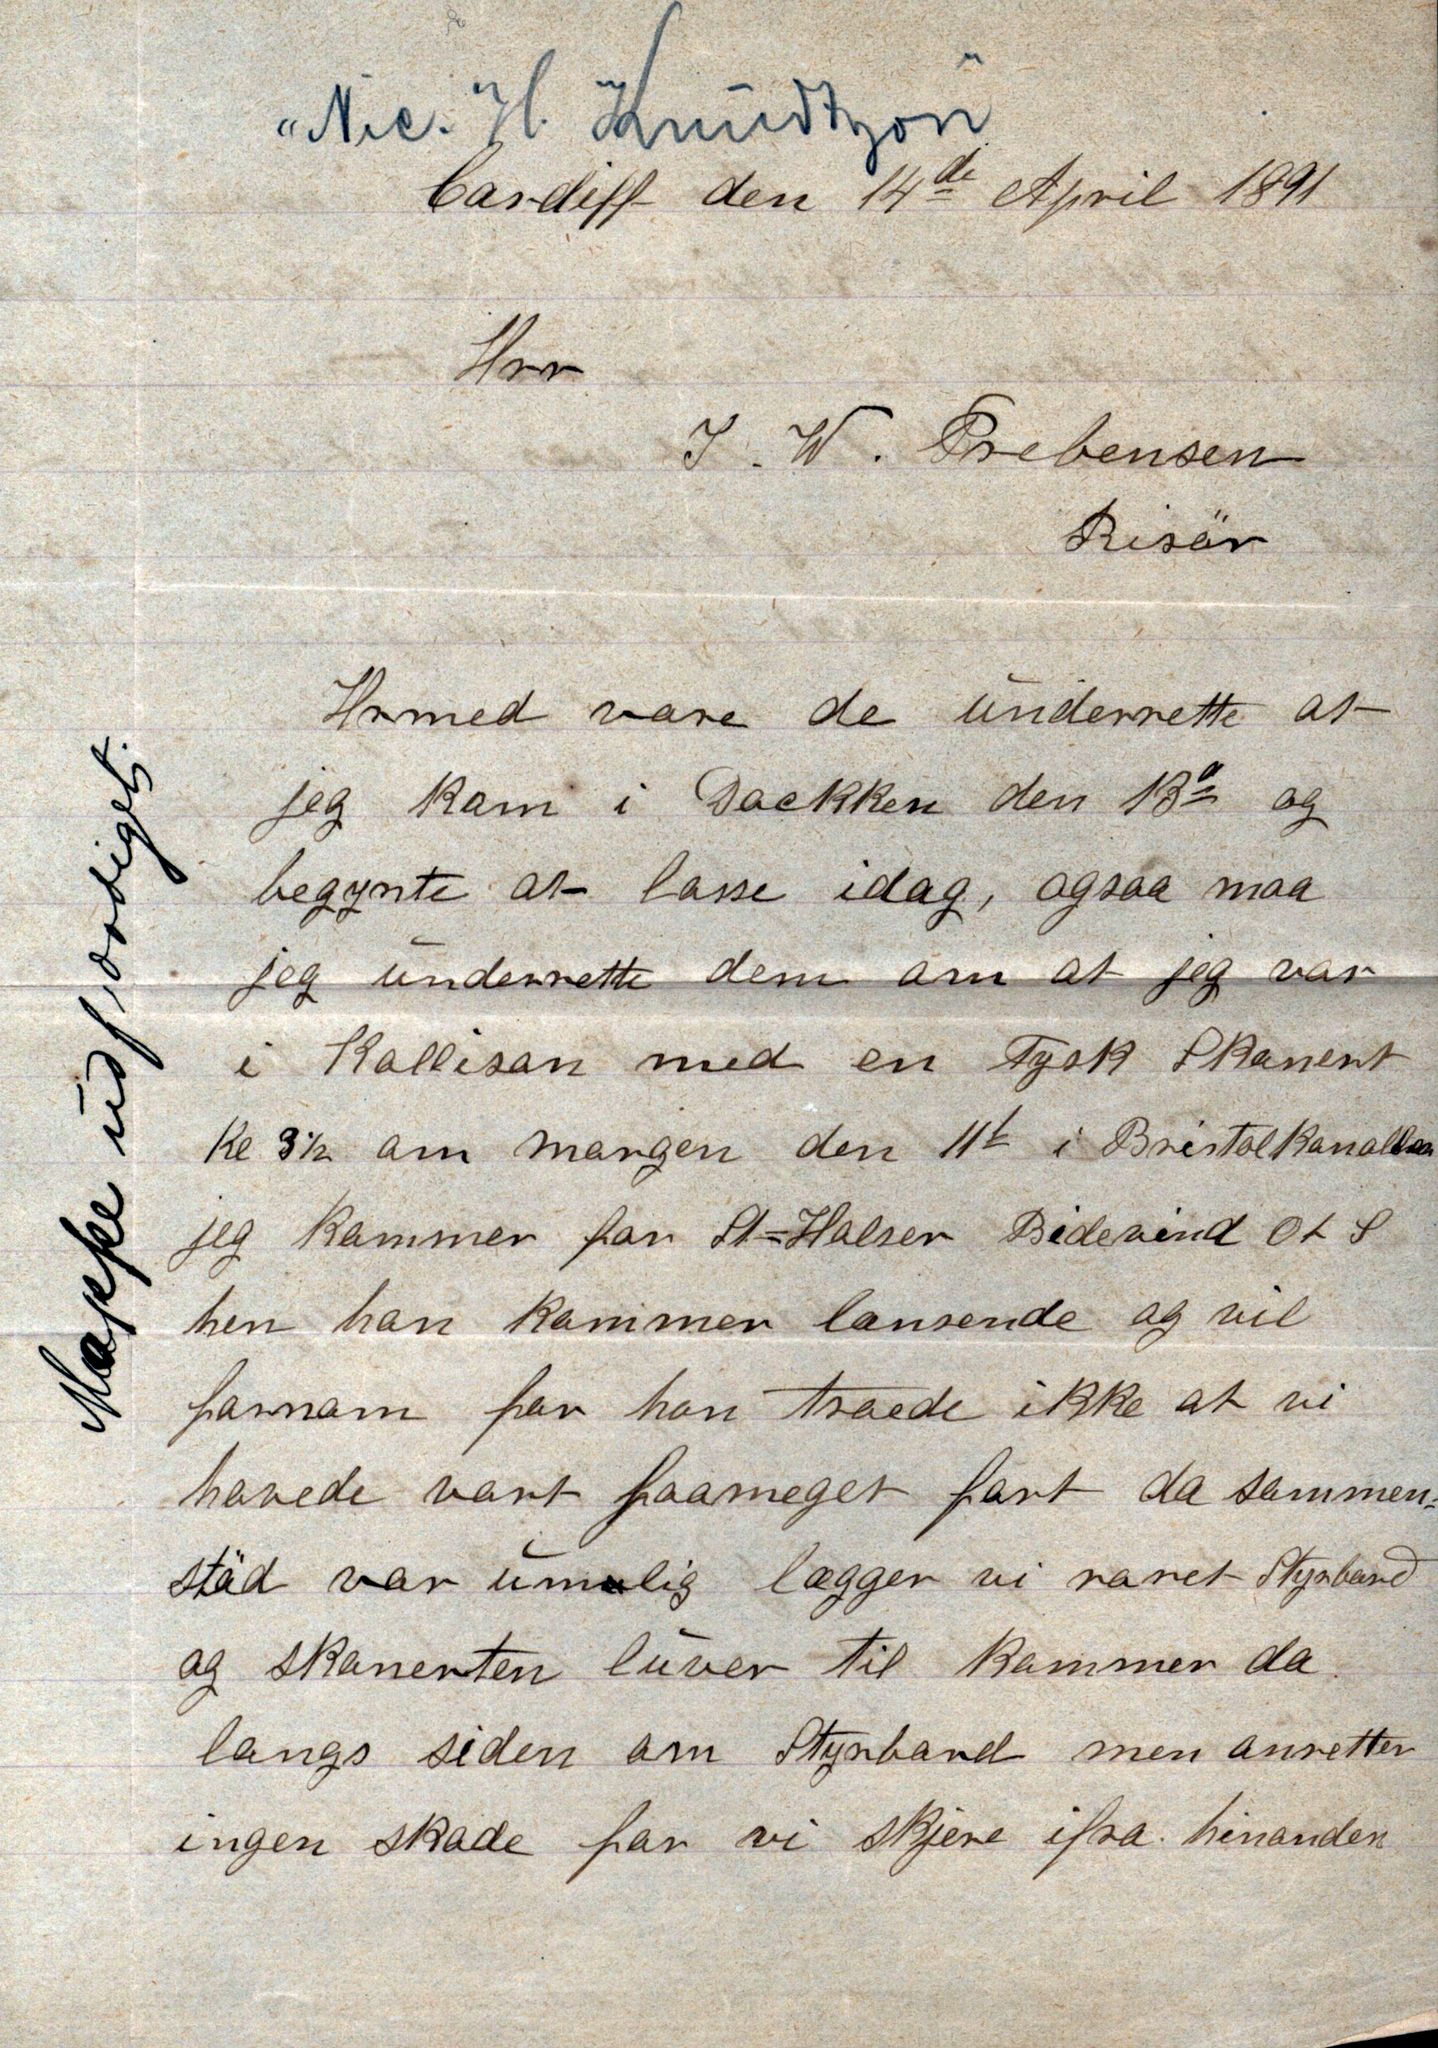 "Nic. H. Knudtzon"
Cardiff den 14de April 1891
Hrr
J. W. Prebensen
Risör
Hrmed vare de underrette at
jeg kom i Dockken den 13de og
begynte at losse idag, ogsaa maa
jeg underrette dem om at jeg var
i Kollison med en Tysk Skonert
Kl 3 1/2 om morgen den 11t i Bristolkanallen
jeg kommer for St=Halser Bidevind Ot S
hen han kommer lænsende og vil
fornom for han troede ikke at vi
havede vort saameget fart da sammen=
städ var umulig lægger vi roret Styrbord
og skonerten luver til kommer da
langs siden om Styrbord men anretter
ingen skade for vi skjere ifra hinanden
Mappe udfærdiget.